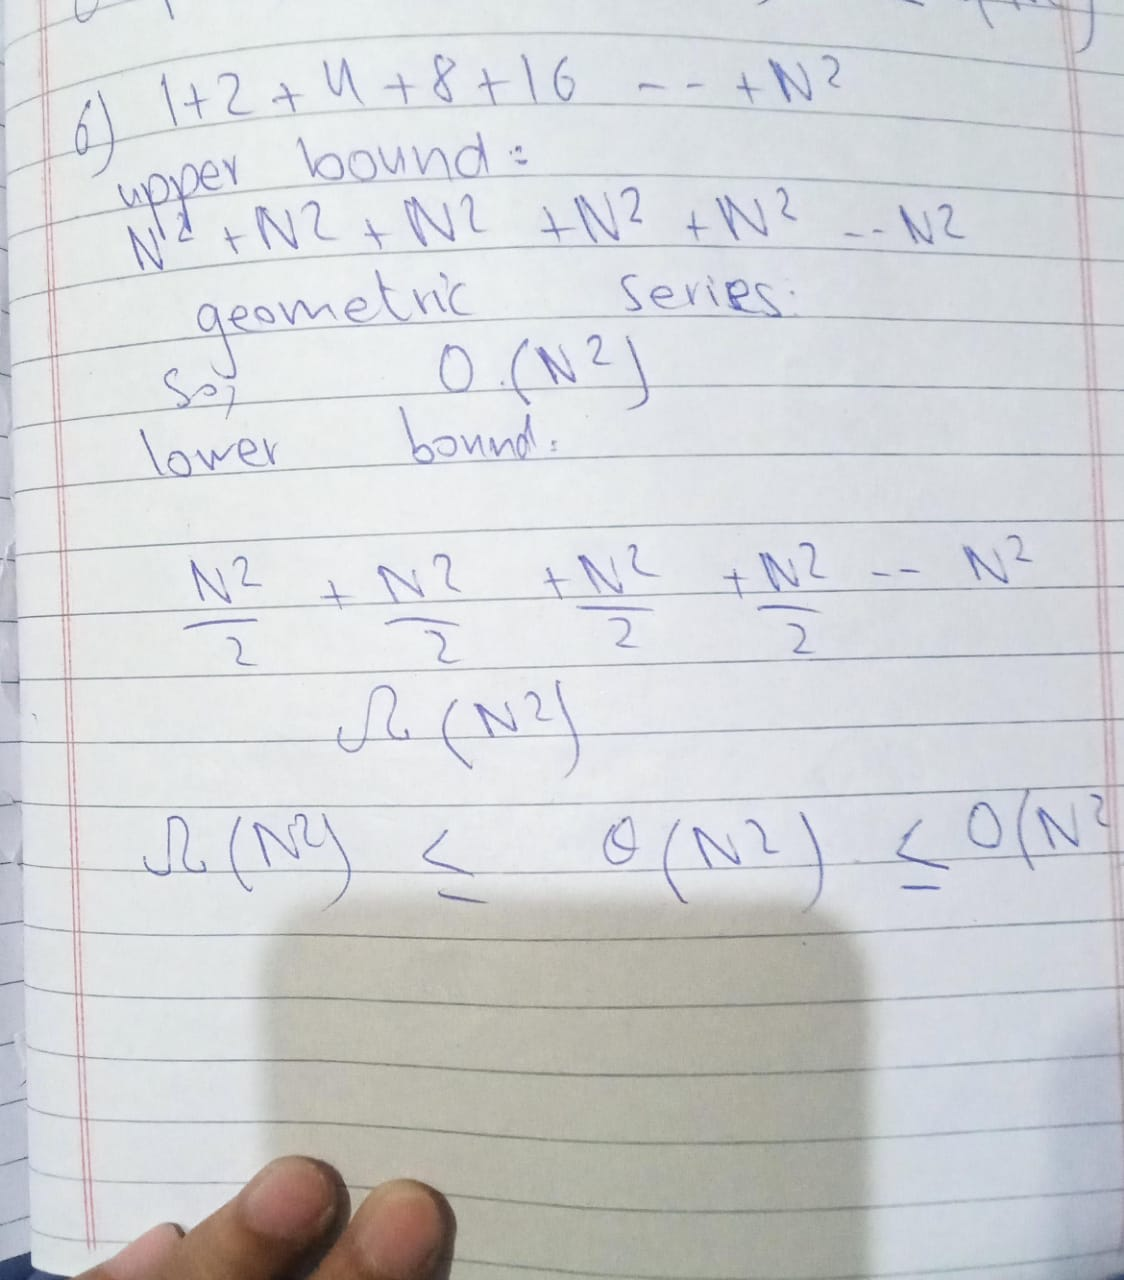 6) 1+2+4+8+16 --- +N²
upper bound:
N² + N² + N² + N² + N² -- N²
geometric series:
So, O(N²)
lower bound:
N²/2 + N²/2 + N²/2 + N²/2 -- N²
Ω (N²)
Ω (N²) ≤ θ (N²) ≤ O(N²